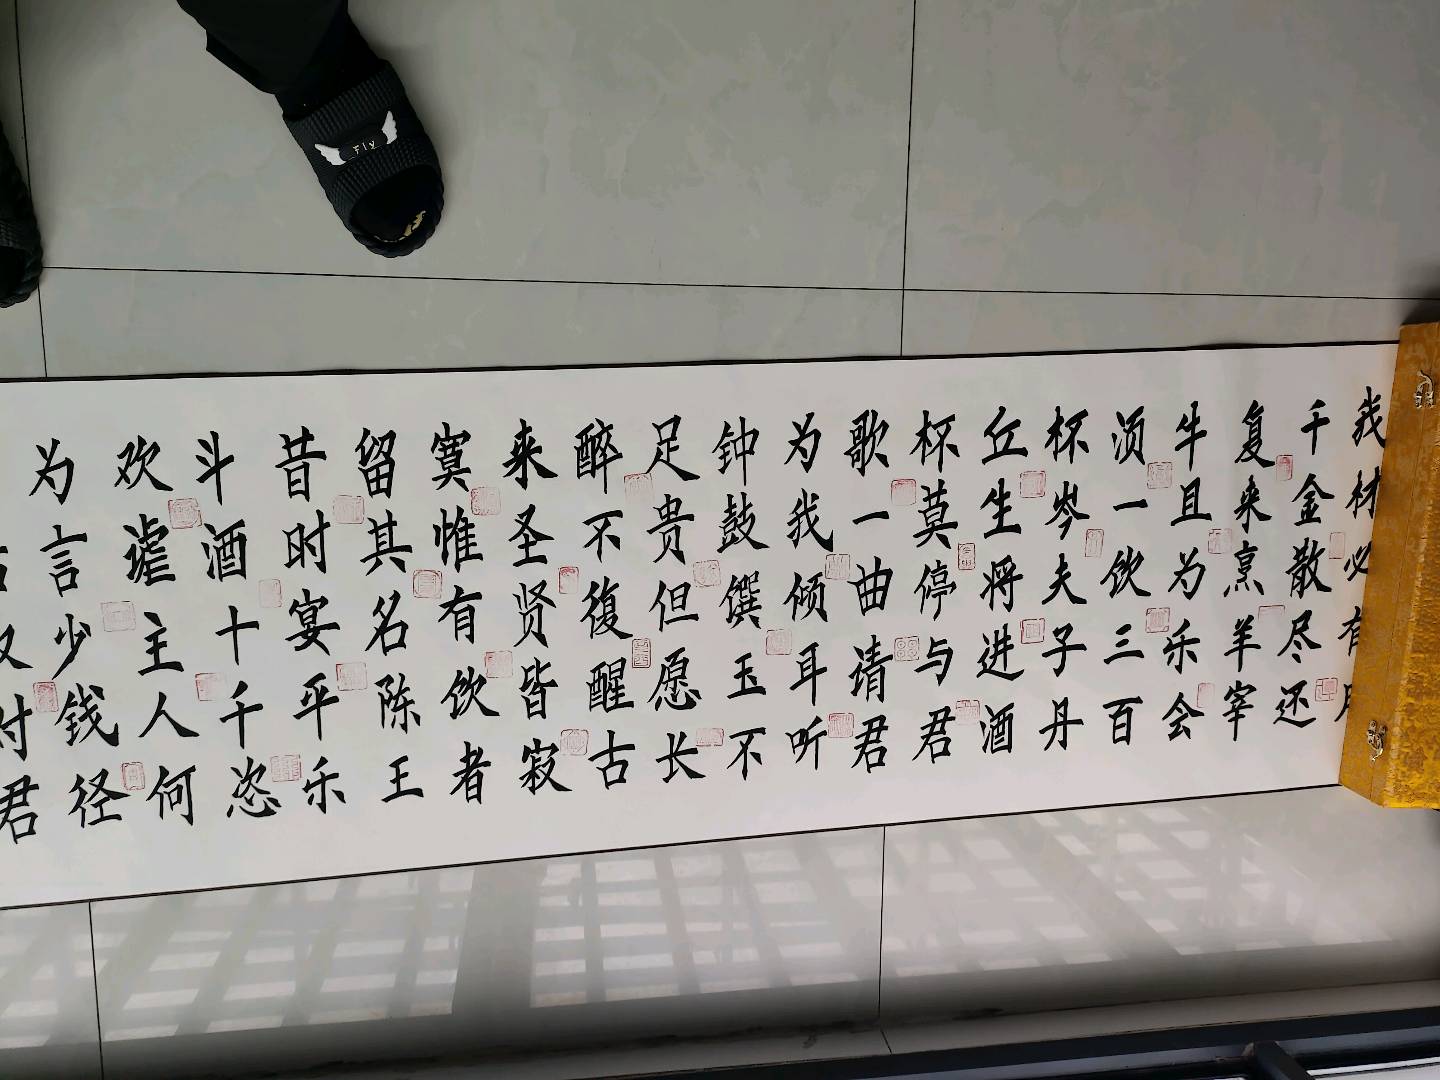 Fly
我材必有用
千金散尽还
复来烹羊宰
牛且为乐会
须一饮三百
杯岑夫子丹
丘生将进酒
杯莫停与君
歌一曲请君
为我倾耳听
钟鼓馔玉不
足贵但愿长
醉不復醒古
来圣贤皆寂
寞惟有饮者
留其名陈王
昔时宴平乐
斗酒十千恣
欢谑主人何
为言少钱径
取对君